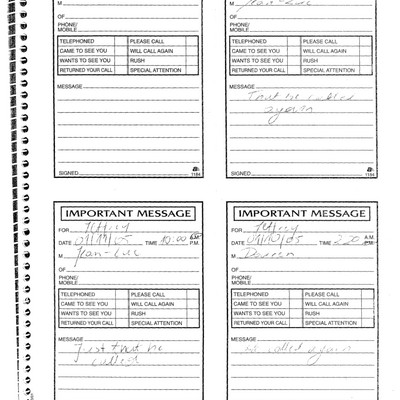 M
OF
PHONE/
MOBILE
TELEPHONED PLEASE CALL
CAME TO SEE YOU WILL CALL AGAIN
WANTS TO SEE YOU RUSH
RETURNED YOUR CALL SPECIAL ATTENTION
MESSAGE
SIGNED 1184
M Jean-Luc
OF
PHONE/
MOBILE
TELEPHONED PLEASE CALL
CAME TO SEE YOU WILL CALL AGAIN
WANTS TO SEE YOU RUSH
RETURNED YOUR CALL SPECIAL ATTENTION
MESSAGE
he called
again
SIGNED 1184
IMPORTANT MESSAGE
FOR Jeffrey
DATE TIME 10:00 A.M.
P.M.
M Jean-Luc
OF
PHONE/
MOBILE
TELEPHONED PLEASE CALL
CAME TO SEE YOU WILL CALL AGAIN
WANTS TO SEE YOU RUSH
RETURNED YOUR CALL SPECIAL ATTENTION
MESSAGE
Just that he
called
IMPORTANT MESSAGE
FOR Jeffrey
DATE TIME 2 20 A.M.
P.M.
M
OF
PHONE/
MOBILE
TELEPHONED PLEASE CALL
CAME TO SEE YOU WILL CALL AGAIN
WANTS TO SEE YOU RUSH
RETURNED YOUR CALL SPECIAL ATTENTION
MESSAGE
he called again